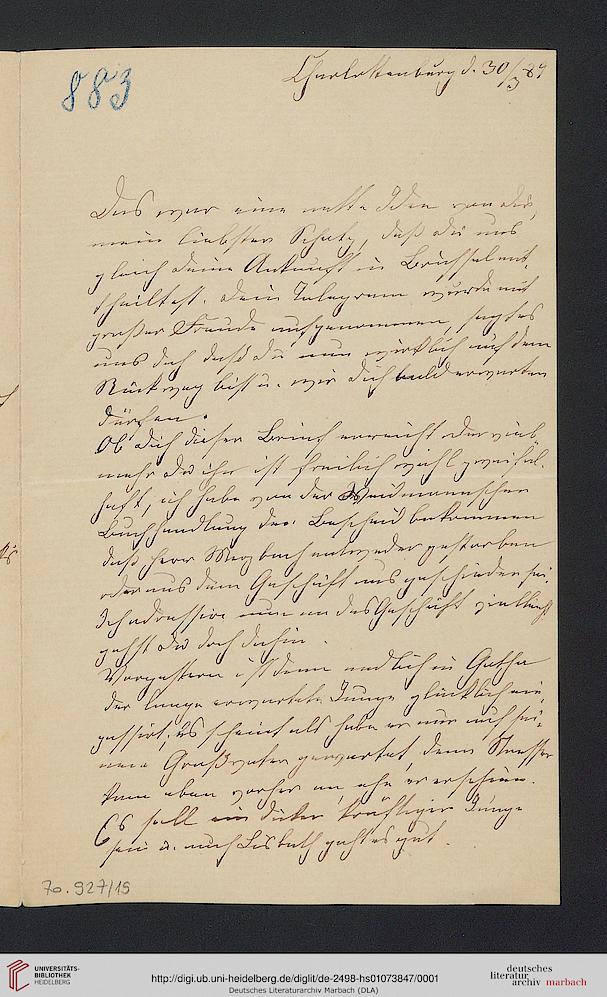 883
Charlottenburg d. 30/3 89
Das war eine nette Idee von dir,
mein liebster Schatz, daß du uns
gleich deine Ankunft in Brüssel mit-
theiltest. Dein Telegramm wurde mit
großer Freude aufgenommen, sagt es
uns doch daß du nun wirklich auf dem
Rückweg bist u. wir dich bald erwarten
dürfen.
Ob dich dieser Brief erreicht oder viel-
mehr du ihn ist freilich wohl zweifel-
haft, ich habe von der Weidmannschen
Buchhandlung den Bescheid bekommen
daß Herr Merzbach entweder gestorben
oder aus dem Geschäft ausgeschieden sei.
Ich adressire nun an das Geschäft vielleicht
gehst du doch dahin.
Vorgestern ist denn endlich in Gotha
der lange erwartete Junge glücklich ein-
passirt, es scheint als habe er nur auf sei-
nen Großvater gewartet, denn
kam eben vorher an, ehe er erschien.
Es soll ein dicker kräftiger Junge
sein u. auch Lisbeth geht es gut.
70.927/19
UNIVERSITÄTS-
BIBLIOTHEK
HEIDELBERG
http://digi.ub.uni-heidelberg.de/diglit/de-2498-hs01073847/0001
Deutsches Literaturarchiv Marbach (DLA)
deutsches
literatur
archiv marbach